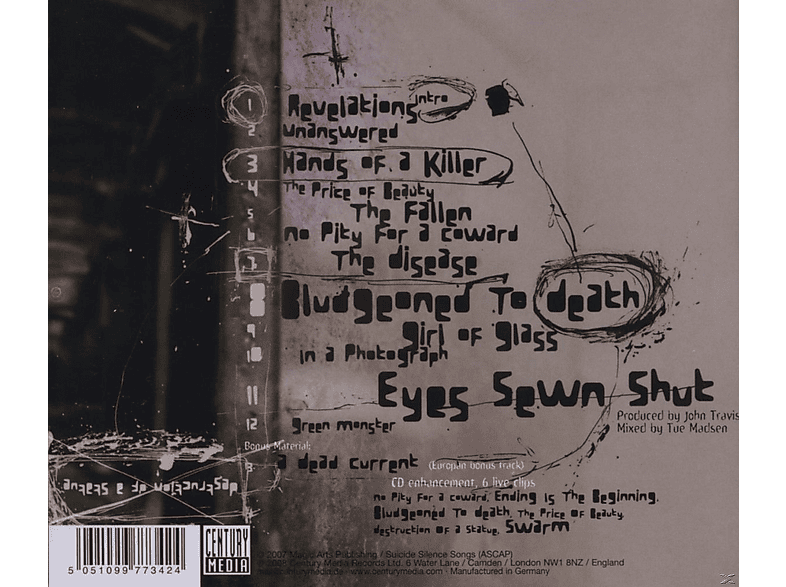 1 Revelations intro
2 unanswered
3 Hands of a Killer
4 The Price of Beauty
5 The Fallen
6 no Pity For a coward
7 The disease
8 Bludgeoned To death
9 girl of glass
10 in a Photograph
11 Eyes Sewn Shut
Produced by John Travis
Mixed by Tue Madsen
12 green monster
Bonus Material:
a dead current (Europan bonus track)
CD enhancement, 6 live clips
no Pity For a coward, Ending is The Beginning,
Bludgeoned To death, The Price of Beauty,
destruction of a Statue, Swarm
destruction of a statue
5 051099 773424
CENTURY MEDIA
2007 Magic Arts Publishing / Suicide Silence Songs (ASCAP)
Century Media Records Ltd. 6 Water Lane / Camden / London NW1 8NZ / England
www.centurymedia.com - Manufactured in Germany